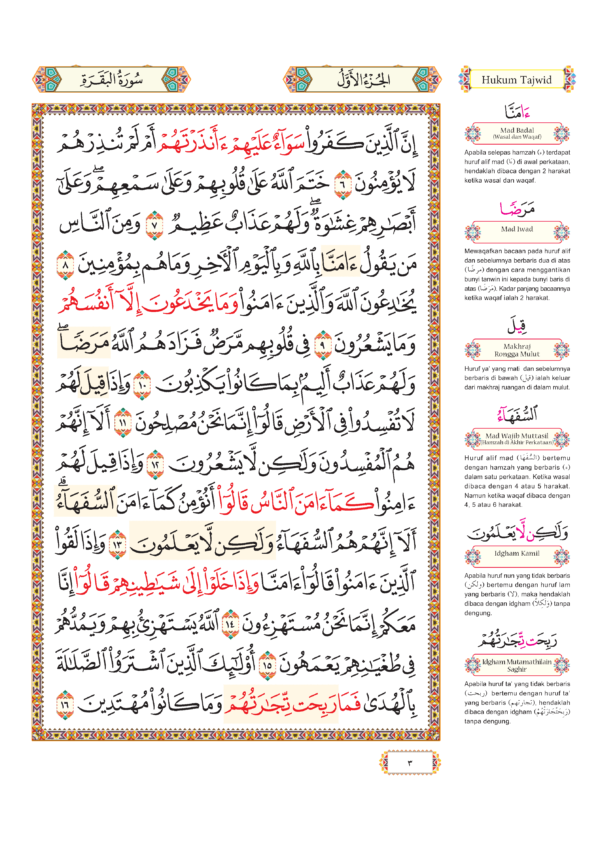 سُورَةُ الْبَقَرَةِ
الجُزْءُ الأَوَّلُ
إِنَّ ٱلَّذِينَ كَفَرُوا۟ سَوَآءٌ عَلَيْهِمْ ءَأَنذَرْتَهُمْ أَمْ لَمْ تُنذِرْهُمْ
لَا يُؤْمِنُونَ ٦ خَتَمَ ٱللَّهُ عَلَىٰ قُلُوبِهِمْ وَعَلَىٰ سَمْعِهِمْ ۖ وَعَلَىٰٓ
أَبْصَٰرِهِمْ غِشَٰوَةٌ ۖ وَلَهُمْ عَذَابٌ عَظِيمٌ ٧ وَمِنَ ٱلنَّاسِ
مَن يَقُولُ ءَامَنَّا بِٱللَّهِ وَبِٱلْيَوْمِ ٱلْءَاخِرِ وَمَا هُم بِمُؤْمِنِينَ ٨
يُخَٰدِعُونَ ٱللَّهَ وَٱلَّذِينَ ءَامَنُوا۟ وَمَا يَخْدَعُونَ إِلَّآ أَنفُسَهُمْ
وَمَا يَشْعُرُونَ ٩ فِى قُلُوبِهِم مَّرَضٌ فَزَادَهُمُ ٱللَّهُ مَرَضًا ۖ
وَلَهُمْ عَذَابٌ أَلِيمٌۢ بِمَا كَانُوا۟ يَكْذِبُونَ ١٠ وَإِذَا قِيلَ لَهُمْ
لَا تُفْسِدُوا۟ فِى ٱلْأَرْضِ قَالُوٓا۟ إِنَّمَا نَحْنُ مُصْلِحُونَ ١١ أَلَآ إِنَّهُمْ
هُمُ ٱلْمُفْسِدُونَ وَلَٰكِن لَّا يَشْعُرُونَ ١٢ وَإِذَا قِيلَ لَهُمْ
ءَامِنُوا۟ كَمَآ ءَامَنَ ٱلنَّاسُ قَالُوٓا۟ أَنُؤْمِنُ كَمَآ ءَامَنَ ٱلسُّفَهَآءُ ۗ
أَلَآ إِنَّهُمْ هُمُ ٱلسُّفَهَآءُ وَلَٰكِن لَّا يَعْلَمُونَ ١٣ وَإِذَا لَقُوا۟
ٱلَّذِينَ ءَامَنُوا۟ قَالُوٓا۟ ءَامَنَّا وَإِذَا خَلَوْا۟ إِلَىٰ شَيَٰطِينِهِمْ قَالُوٓا۟ إِنَّا
مَعَكُمْ إِنَّمَا نَحْنُ مُسْتَهْزِءُونَ ١٤ ٱللَّهُ يَسْتَهْزِئُ بِهِمْ وَيَمُدُّهُمْ
فِى طُغْيَٰنِهِمْ يَعْمَهُونَ ١٥ أُو۟لَٰٓئِكَ ٱلَّذِينَ ٱشْتَرَوُا۟ ٱلضَّلَٰلَةَ
بِٱلْهُدَىٰ فَمَا رَبِحَت تِّجَٰرَتُهُمْ وَمَا كَانُوا۟ مُهْتَدِينَ ١٦
٣
Hukum Tajwid
ءَامَنَّا
Mad Badal
(Wasal dan Waqaf)
Apabila selepas hamzah (ء) terdapat
huruf alif mad (ـا) di awal perkataan,
hendaklah dibaca dengan 2 harakat
ketika wasal dan waqaf.
مَرَضًا
Mad Iwad
Mewaqafkan bacaan pada huruf alif
dan sebelumnya berbaris dua di atas
(مرضًا) dengan cara menggantikan
bunyi tanwin ini kepada bunyi baris di
atas (مَرَضَا). Kadar panjang bacaannya
ketika waqaf ialah 2 harakat.
قِيلَ
Makhraj
Rongga Mulut
Huruf ya' yang mati dan sebelumnya
berbaris di bawah (قِيل) ialah keluar
dari makhraj ruangan di dalam mulut.
ٱلسُّفَهَآءُ
Mad Wajib Muttasil
(Hamzah di Akhir Perkataan)
Huruf alif mad (السُّفَهَا) bertemu
dengan hamzah yang berbaris (ء)
dalam satu perkataan. Ketika wasal
dibaca dengan 4 atau 5 harakat.
Namun ketika waqaf dibaca dengan
4, 5 atau 6 harakat.
وَلَٰكِن لَّا يَعْلَمُونَ
Idgham Kamil
Apabila huruf nun yang tidak berbaris
(ولكن) bertemu dengan huruf lam
yang berbaris (لَا), maka hendaklah
dibaca dengan idgham (وَلَكِلَّا) tanpa
dengung.
رَبِحَت تِّجَٰرَتُهُمْ
Idgham Mutamathilain
Saghir
Apabila huruf ta' yang tidak berbaris
(ربحت) bertemu dengan huruf ta'
yang berbaris (تجارتهم), hendaklah
dibaca dengan idgham (رَبِحَتِّجَارَتُهُمْ)
tanpa dengung.